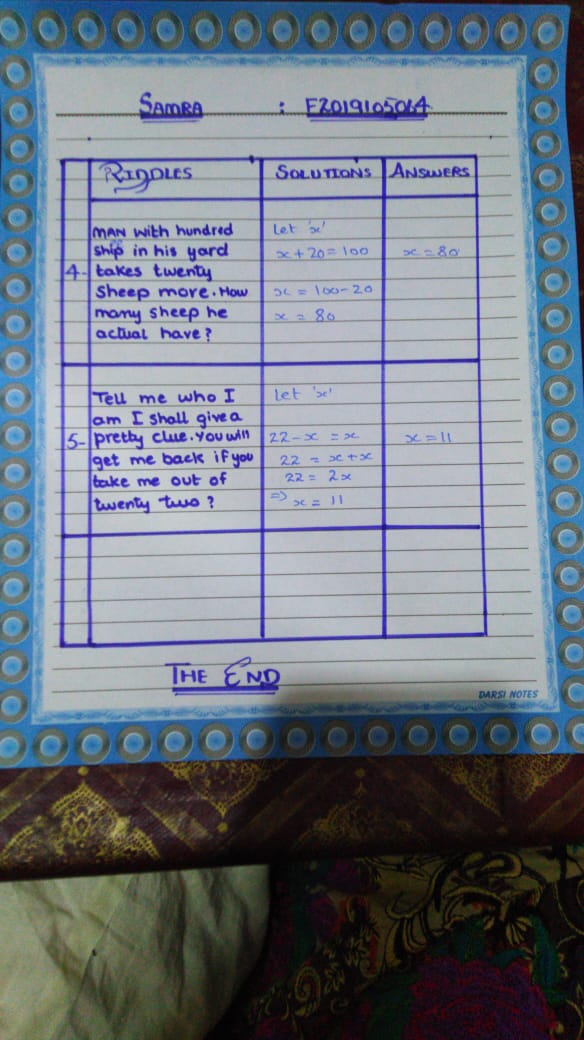 SAMRA : F2019105064
RIDDLES
SOLUTIONS
ANSWERS
4-
MAN with hundred
ship in his yard
takes twenty
Sheep more. How
many sheep he
actual have?
Let 'x'
x + 20 = 100
x = 100 - 20
x = 80
x = 80
5-
Tell me who I
am I shall give a
pretty clue. You will
get me back if you
take me out of
twenty two?
Let 'x'
22 - x = x
22 = x + x
22 = 2x
=> x = 11
x = 11
THE END
DARSI NOTES